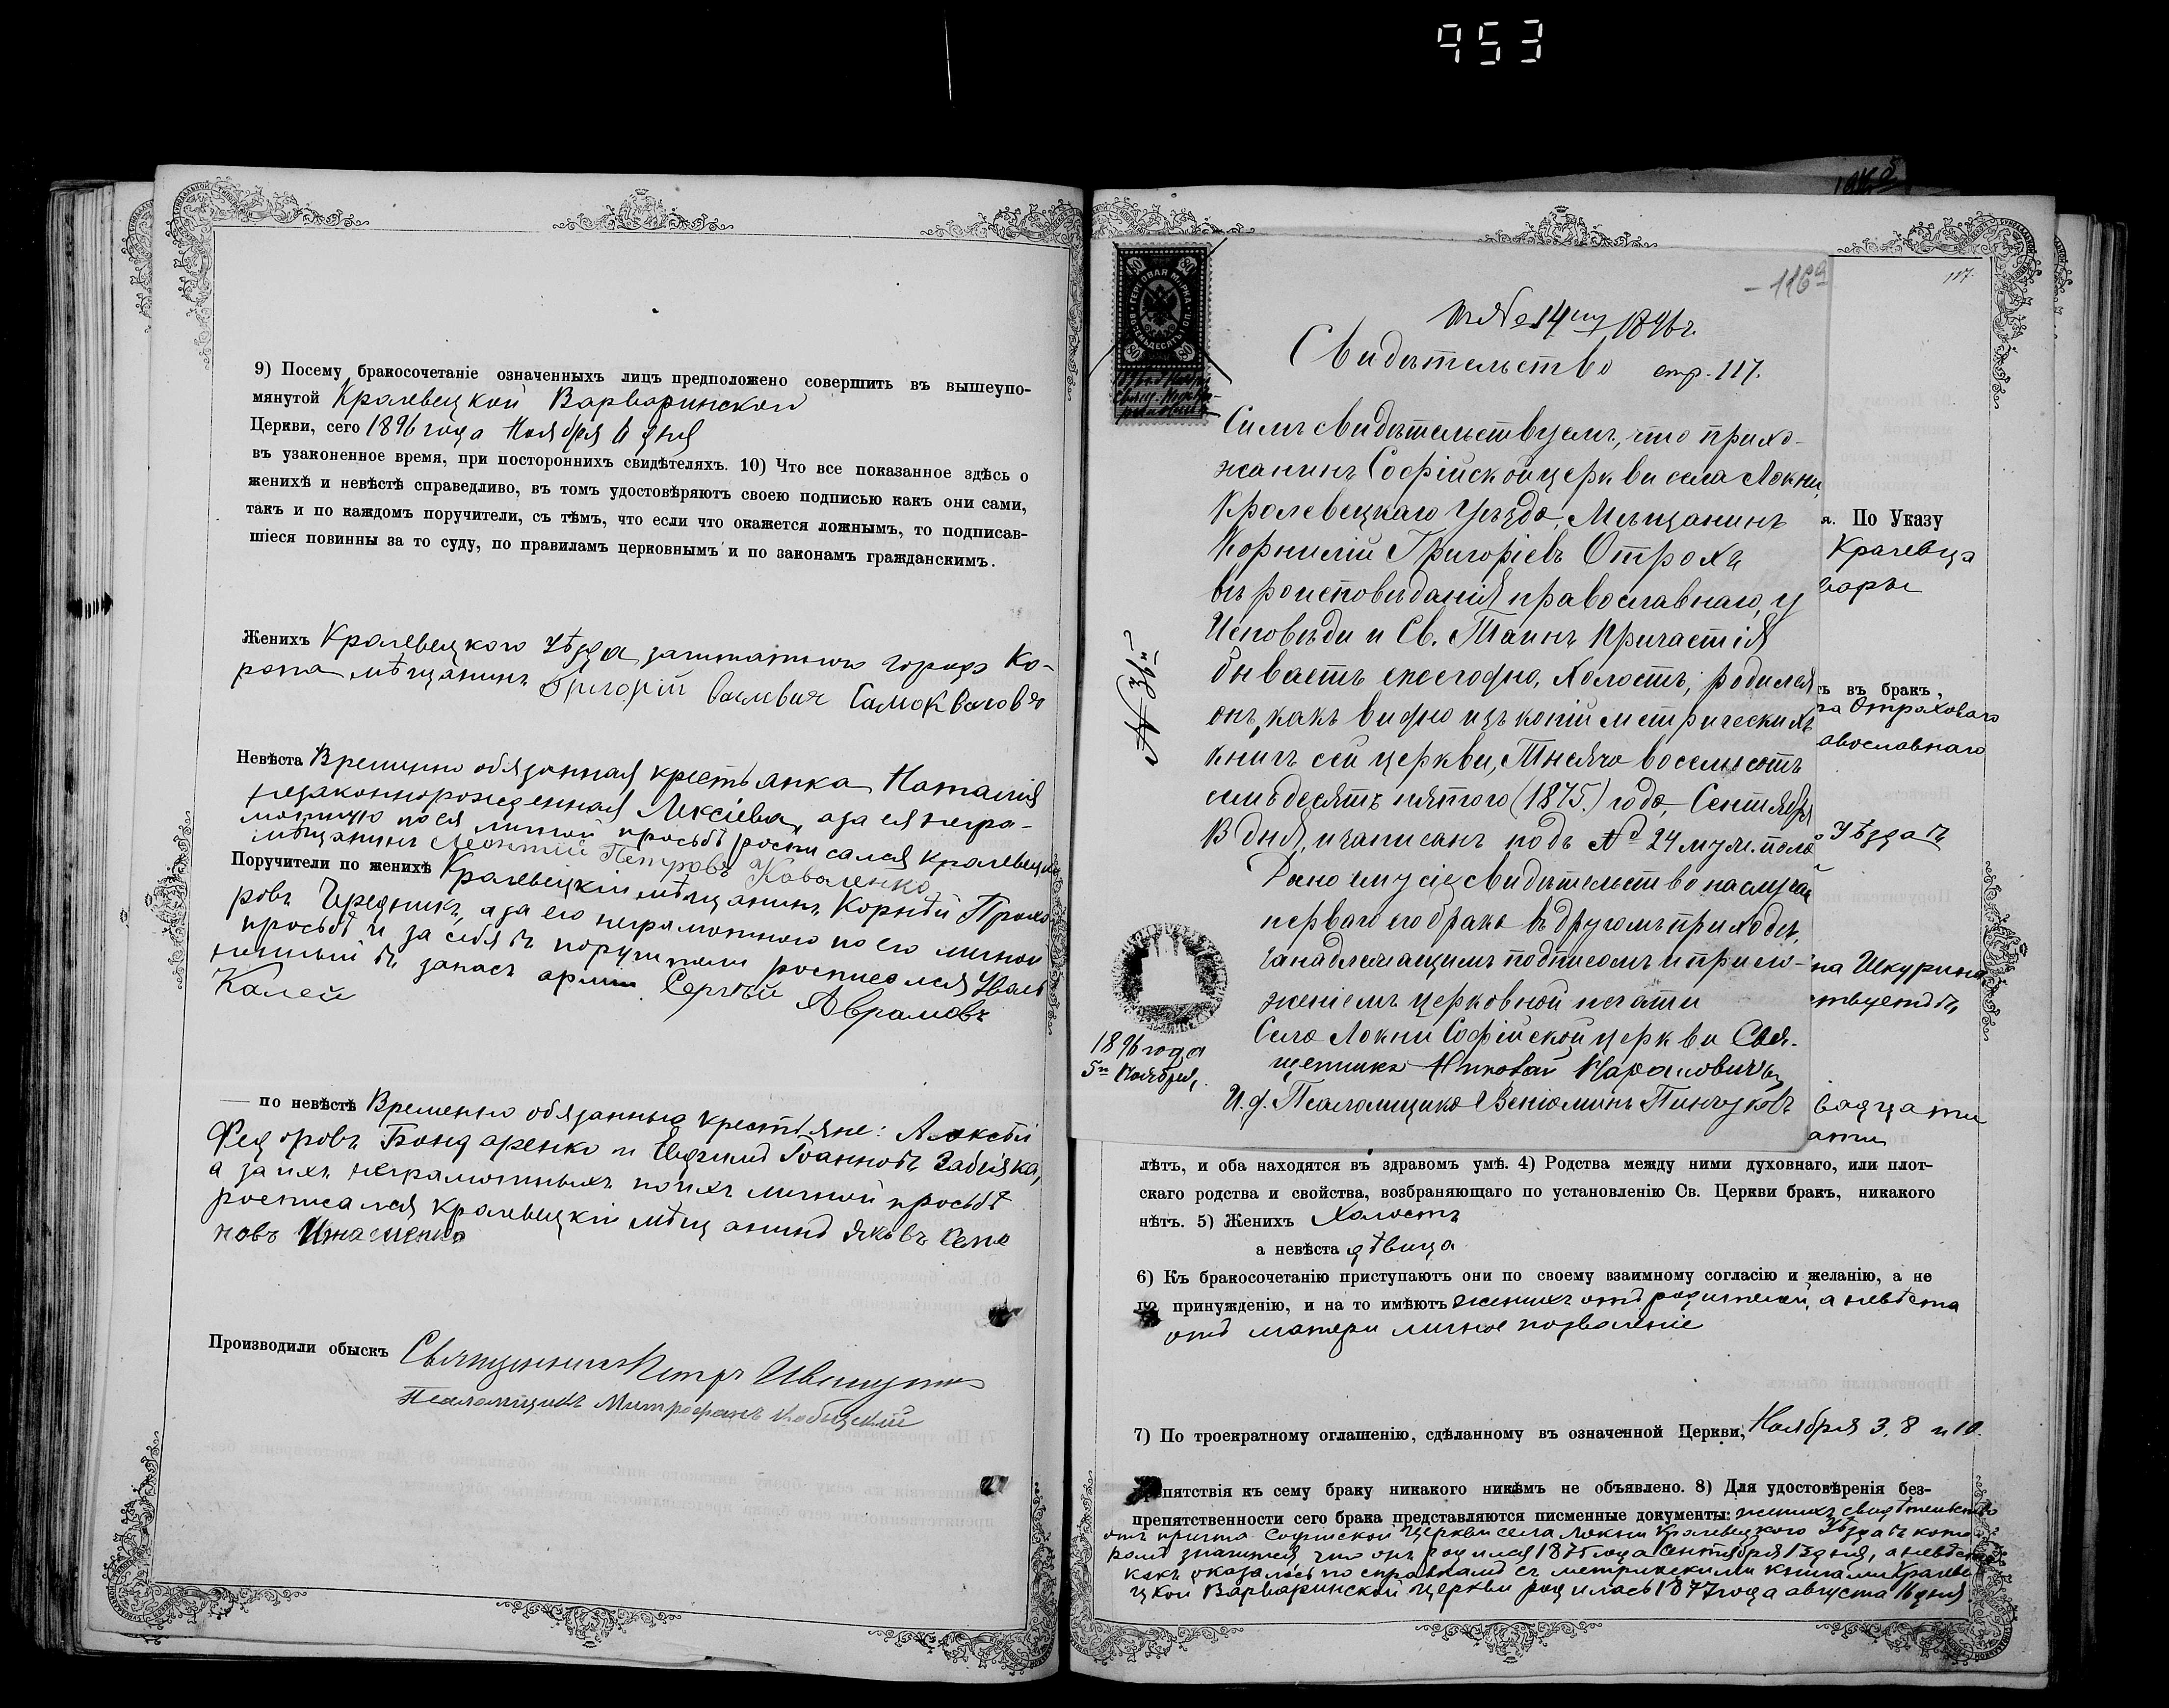 953
9) Посему бракосочетаніе означенныхъ лицъ предположено совершить въ вышеупо-
мянутой Кролевецкой Варваринской
Церкви, сего 1896 года Ноября 6 дня
въ узаконенное время, при постороннихъ свидѣтеляхъ. 10) Что все показанное здѣсь о
женихѣ и невѣстѣ справедливо, въ томъ удостовѣряютъ своею подписью какъ они сами,
такъ и по каждомъ поручители, съ тѣмъ, что если что окажется ложнымъ, то подписав-
шіеся повинны за то суду, по правиламъ церковнымъ и по законамъ гражданскимъ.
Женихъ Кролевецкого Уѣзда заштатного города Ко-
ропа мѣщанинъ Григорій Самоквасовъ
Невѣста Временно обязанная крестьянка Наталія
незаконнорожденная Алексіева, а за ея негра-
мотную по ея личной просьбѣ росписался кролевецкій
мѣщанинъ Леонтій Петровъ Коваленко
Поручители по женихѣ Кролевецкій мѣщанинъ Корнѣй Прохо
ровъ Чередникъ, а за его неграмотного по его личной
просьбѣ и за себя въ поручители росписался Уволь
ненный въ запасъ арміи Сергѣй Аврамовъ
Калей
— по невѣстѣ Временно обязанные крестьяне: Алексѣй
Федоровъ Бондаренко и Іоанновъ Забіяка,
а за ихъ неграмотныхъ по ихъ личной просьбѣ
росписался кролевецкій мѣщанинъ Яковъ Семе
новъ Игнатенко
Производили обыскъ Священникъ Петръ
Псаломщикъ Митрофанъ
116а
117.
къ № 14му 1896 г.
Свидѣтельство стр. 117.
ГЕРБОВАЯ МАРКА
ВОСЕМЬДЕСЯТЪ КОП.
80
Симъ свидѣтельствуемъ, что прихо-
жанинъ Софійской церкви села Локни,
Кролевецкаго уѣзда, Мѣщанинъ
Корнилій Григоріевъ Отрохъ
вѣроисповѣданія православнаго, у
Исповѣди и Св. Таинъ Причастія
бываетъ ежегодно, холостъ, родился
онъ, какъ видно изъ копій метрическихъ
книгъ сей церкви, Тысяча восемьсотъ
семьдесятъ пятого (1875.) года, Сентября
13 дня, и записанъ подъ № 24 муж. пола
Дано ему сіе свидѣтельство на случай
перваго его брака въ другомъ приходѣ,
за надлежащимъ подписомъ и прило-
женіемъ церковной печати
Села Локни Софійской церкви Свя-
щенникъ Николай
И. д. Псаломщика Веніаминъ Пинчуковъ
1896 года
5го Ноября,
я. По Указу
Кролевца
вары
ть въ бракъ,
Отрохова
авославнаго
Уѣзда
на Шкурина
лѣтъ, и оба находятся въ здравомъ умѣ. 4) Родства между ними духовнаго, или плот-
скаго родства и свойства, возбраняющаго по установленію Св. Церкви бракъ, никакого
нѣтъ. 5) Женихъ Холостъ
а невѣста дѣвица
6) Къ бракосочетанію приступаютъ они по своему взаимному согласію и желанію, а не
по принужденію, и на то имѣютъ женихъ отъ родителей, а невѣста
отъ матери личное позволеніе
7) По троекратному оглашенію, сдѣланному въ означенной Церкви, Ноября 3, 8 и 10.
препятствія къ сему браку никакого никѣмъ не объявлено. 8) Для удостовѣренія без-
препятственности сего брака представляются писменные документы: женихъ свидѣтельство
отъ причта Софійской Церкви села Локни Кролевецкого Уѣзда въ кото
ромъ значится, что онъ родился 1875 года Сентября 13 дня, а невѣста
какъ оказалось по справкамъ съ метрическими книгами Кролеве
цкой Варваринской Церкви родилась 1877 года августа 16 дня